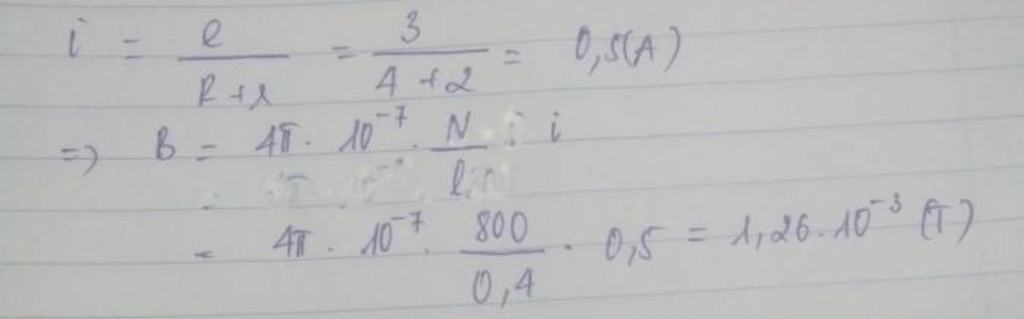 i = e / (R + r) = 3 / (4 + 2) = 0,5(A)
=> B = 4π . 10⁻⁷ . N / l . i
= 4π . 10⁻⁷ . 800 / 0,4 . 0,5 = 1,26.10⁻³ (T)